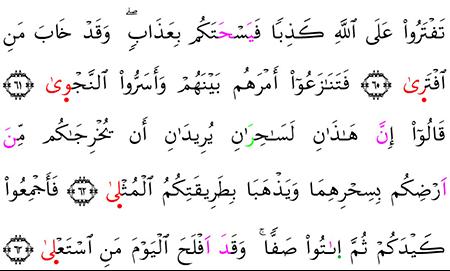 تَفْتَرُواْ عَلَى اَللَّهِ كَذِبٗا فَيَسْحَتَكُم بِعَذَابٖۖ وَقَدْ خَابَ مَنِ
اِفْتَرىٰ ٦٠ فَتَنَٰزَعُوٓاْ أَمْرَهُم بَيْنَهُمْ وَأَسَرُّواْ اُلنَّجْوىٰ ٦١
قَالُوٓاْ إِنَّ هَٰذَٰنِ لَسَٰحِرَٰنِ يُرِيدَٰنِ أَن يُخْرِجَٰكُم مِّنَ
اَرْضِكُم بِسِحْرِهِمَا وَيَذْهَبَا بِطَرِيقَتِكُمُ اُلْمُثْلىٰ ٦٢ فَأَجْمِعُواْ
كَيْدَكُمْ ثُمَّ اَٰتُواْ صَفّٗاۚ وَقَدَ اَفْلَحَ اَلْيَوْمَ مَنِ اِسْتَعْلىٰ ٦٣